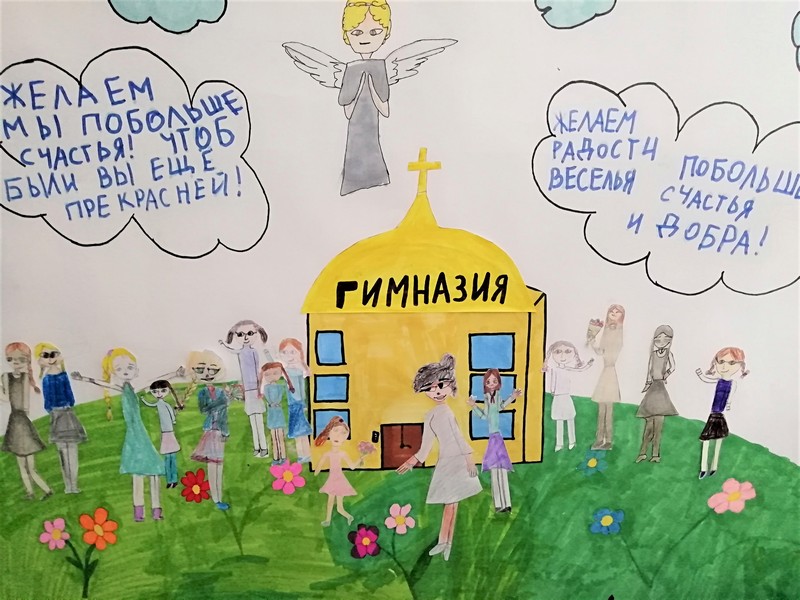 ЖЕЛАЕМ
МЫ ПОБОЛЬШЕ
СЧАСТЬЯ! ЧТОБ
БЫЛИ ВЫ ЕЩЕ
ПРЕКРАСНЕЙ!
ЖЕЛАЕМ
РАДОСТИ ПОБОЛЬШЕ
ВЕСЕЛЬЯ СЧАСТЬЯ
И ДОБРА!
ГИМНАЗИЯ